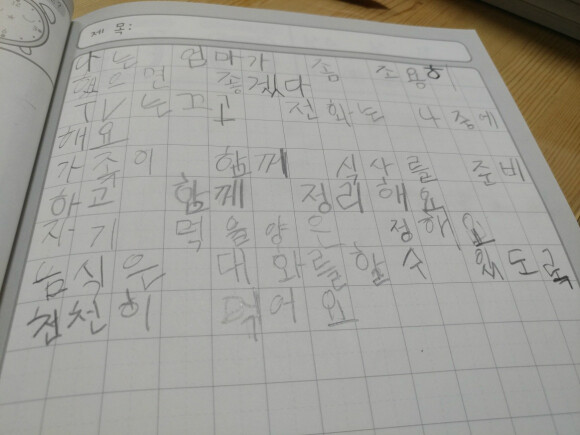 제 목:
나는 엄마가 좀 조용히
했으면 좋겠다
TV는 끄고 전화는 나중에
해요
가족이 함께 식사를 준비
하고 함께 정리해요
자기 먹을 양은 정해요
음식은 대화를 할 수 했도록
천천히 먹어요